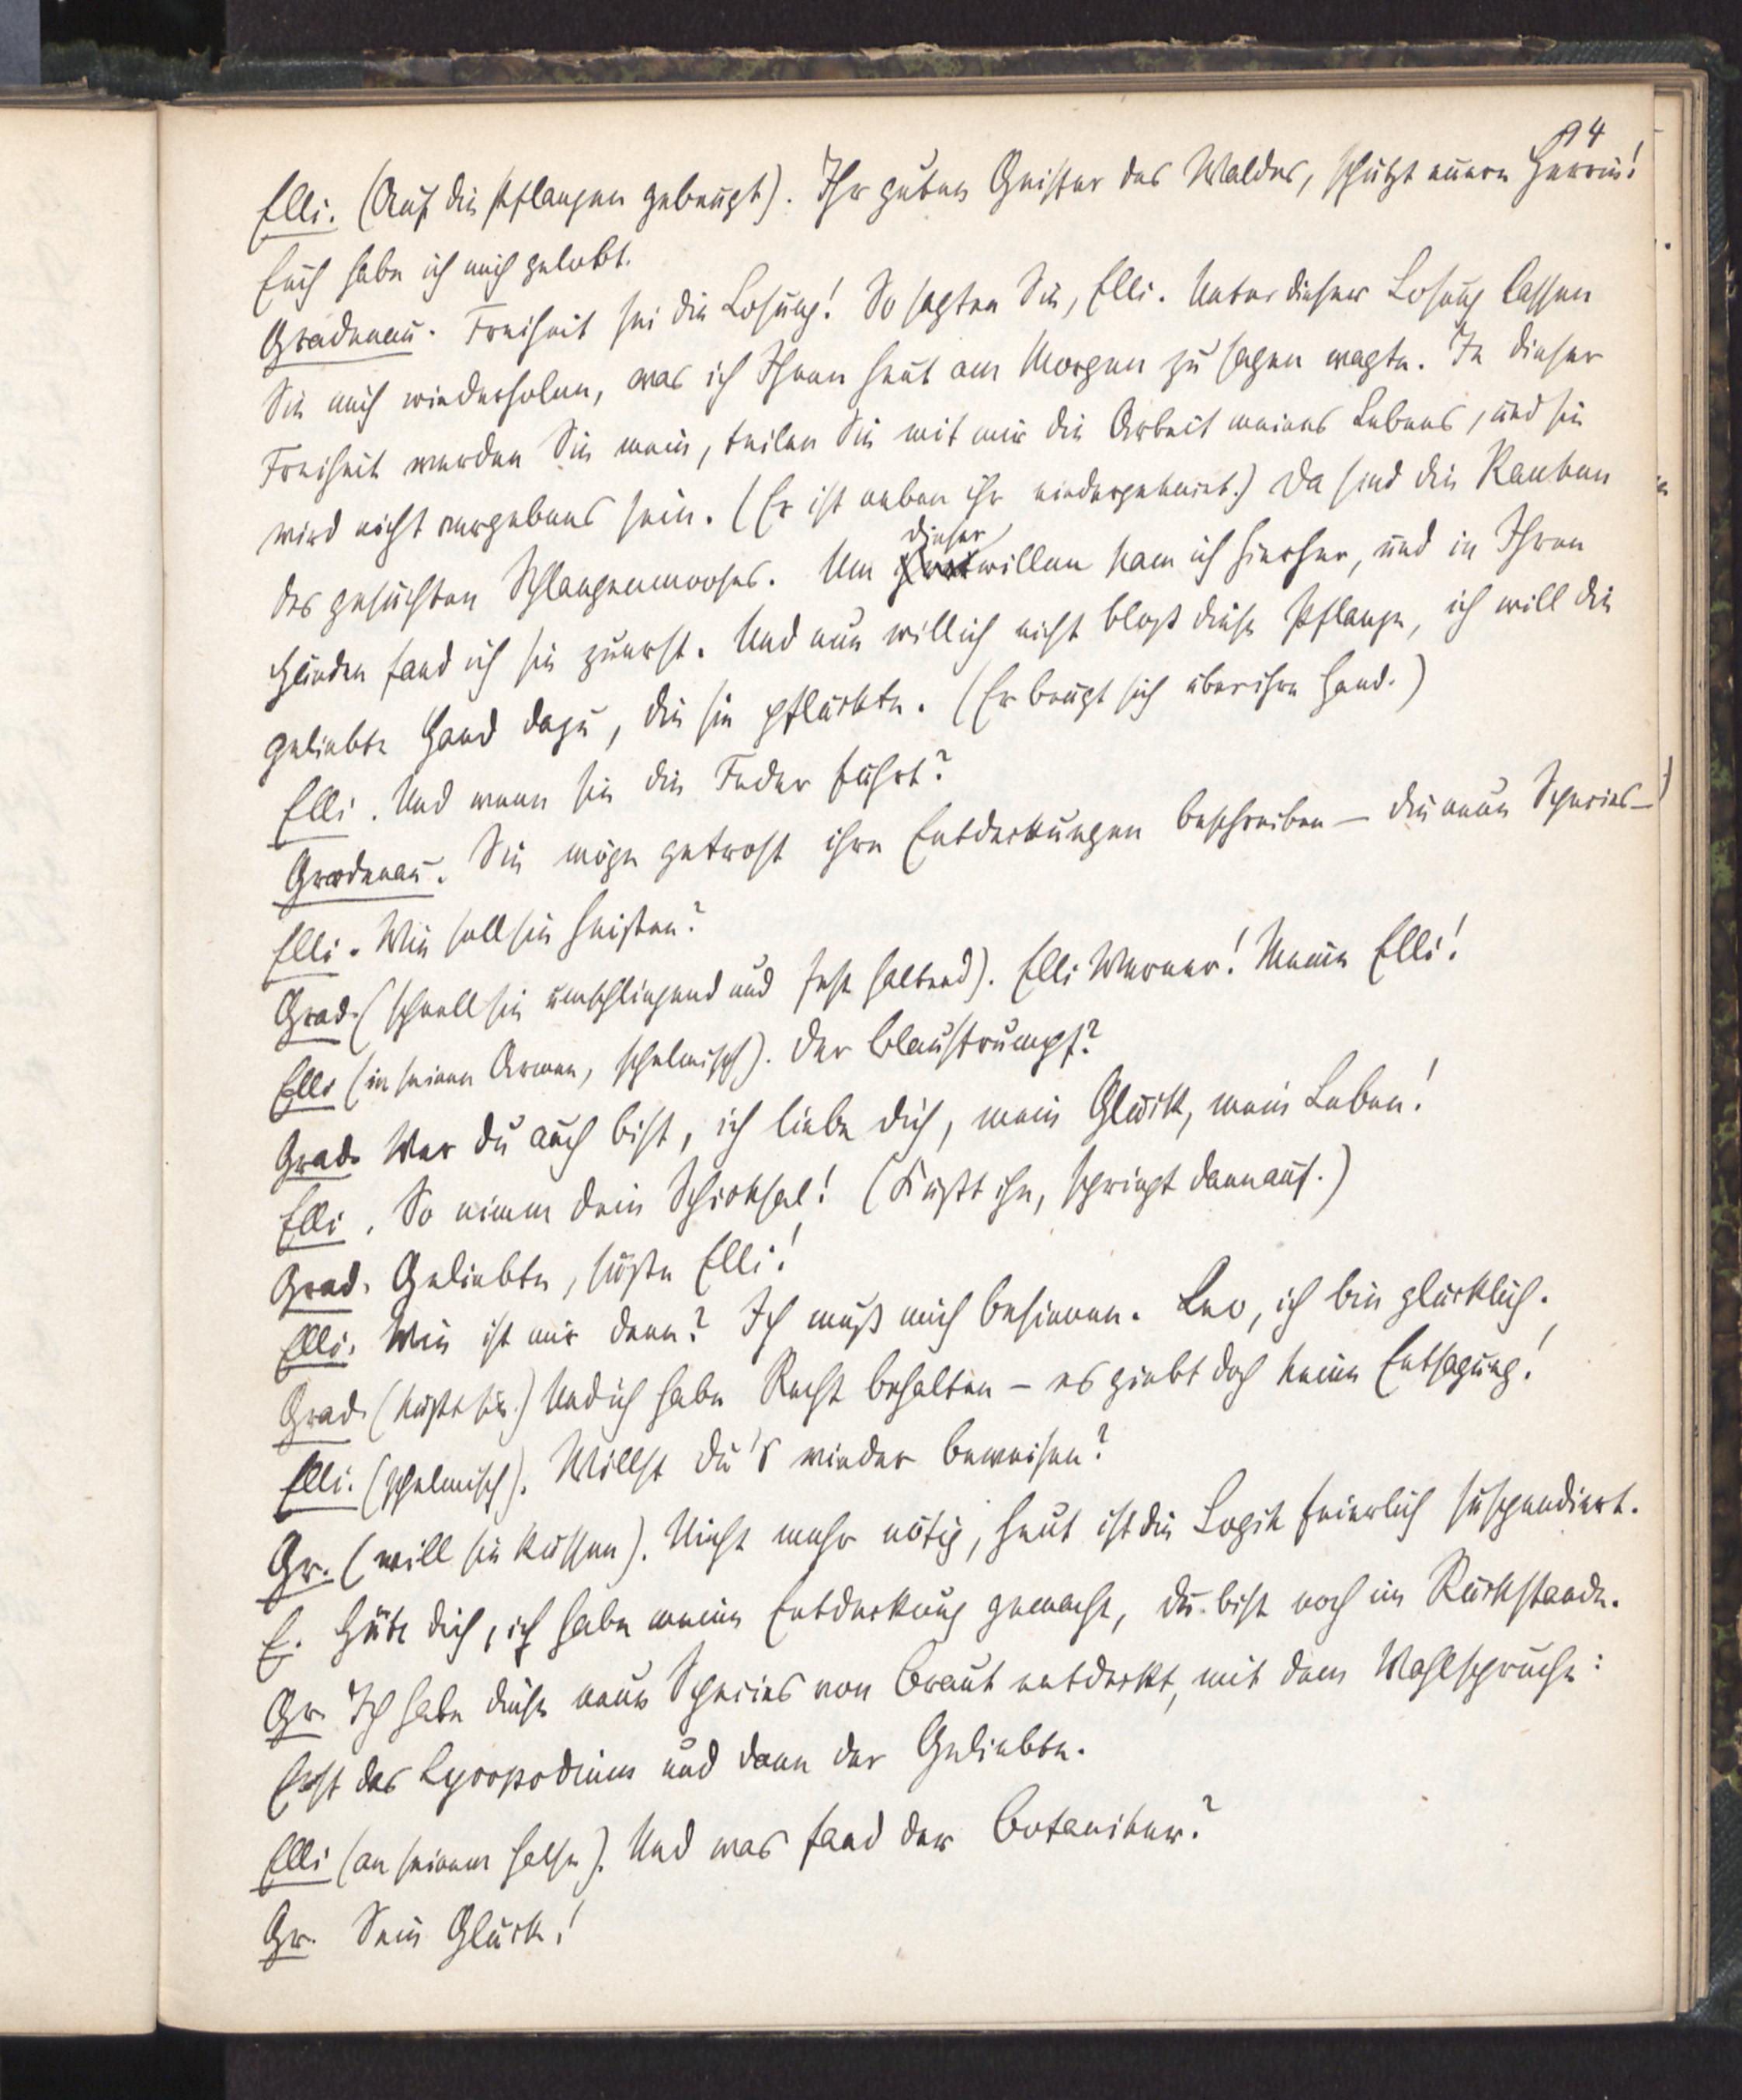 94
Elli. (Auf die Pflanzen gebeugt). Ihr guten Geister des Waldes, schützt euern Herrin!
Euch habe ich mich gelobt.
Gradenau. Freiheit sei die Losung! So sagten Sie, Elli. Unter dieser Losung lassen
Sie mich wiederholen, was ich Ihnen heut am Morgen zu sagen wagte. In dieser
Freiheit werden Sie mein, teilen Sie mit mir die Arbeit meines Lebens, und sie
wird nicht vergebens sein. (Er ist neben ihr niedergekniet.) Da sind die Ranken
dieser
des gesuchten Schlangenmooses. Um willen kam ich hierher, und in Ihren
Händen fand ich sie zuerst. Und nun will ich nicht bloß diese Pflanze, ich will die
geliebte Hand dazu, die sie pflückte. (Er beugt sich über ihre Hand.)
Elli. Und wenn sie die Feder führt?
Gradenau. Sie möge getrost ihre Entdeckungen beschreiben — die neue Species —
Elli. Wie soll sie heißen?
Grad. (schnell sie umschlingend und fest haltend). Elli Werner! Meine Elli!
Elli (in seinen Armen, schelmisch). Der Blaustrumpf?
Grad. Wer du auch bist, ich liebe dich, mein Glück, mein Leben!
Elli. So nimm dein Schicksal! (Küßt ihn, springt dann auf.)
Grad. Geliebte, süße Elli!
Elli. Wie ist mir denn? Ich muß mich besinnen. Leo, ich bin glücklich.
Grad. (küßt sie.) Und ich habe Recht behalten — es giebt doch keine Entsagung!
Elli. (schelmisch). Willst du's wieder beweisen?
Gr. (will sie küssen). Nicht mehr nötig, heut ist die Logik feierlich suspendiert.
E. Hüte dich, ich habe meine Entdeckung gemacht, du bist noch im Rückstande.
Gr. Ich habe diese neue Species von Braut entdeckt, mit dem Wahlspruche:
Erst das Lycopodium und dann der Geliebte.
Elli (an seinem Halse). Und was fand der Botaniker?
Gr. Sein Glück!